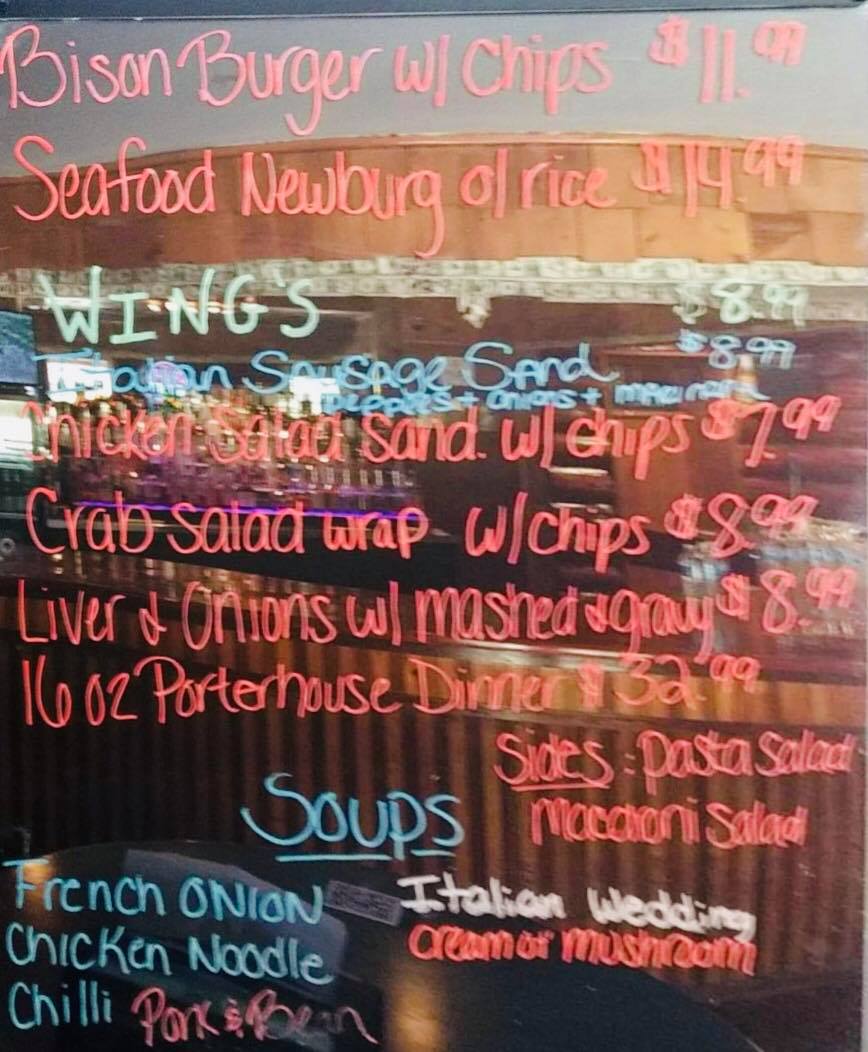 Bison Burger w/ Chips $11.99
Seafood Newburg o/ rice $14.99
WING'S $8.99
Italian Sausage Sand $8.99
peppers + onions + marinara
Chicken Salad Sand. w/ chips $7.99
Crab Salad wrap w/chips $8.99
Liver & Onions w/ mashed & gravy $8.99
16 oz Porterhouse Dinner $32.99
Sides: Pasta Salad
Macaroni Salad
Soups
French ONION
Italian Wedding
Chicken Noodle
Cream of mushroom
Chilli Pork & Bean